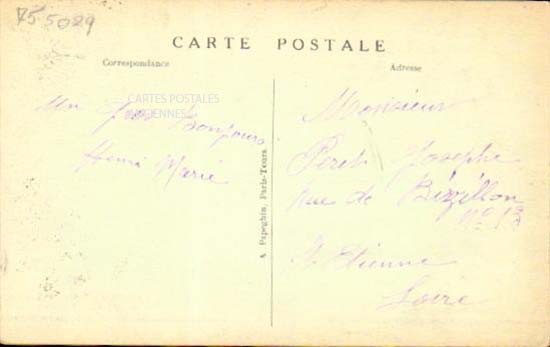 755029
CARTE POSTALE
Correspondance
Adresse
Un gros Bonjours
Henri Marie
CARTES POSTALES
ANCIENNES
A. Papeghin, Paris-Tours.
Monsieur
Peret Josephe
Rue de Bizillon
no 13
St Etienne
Loire